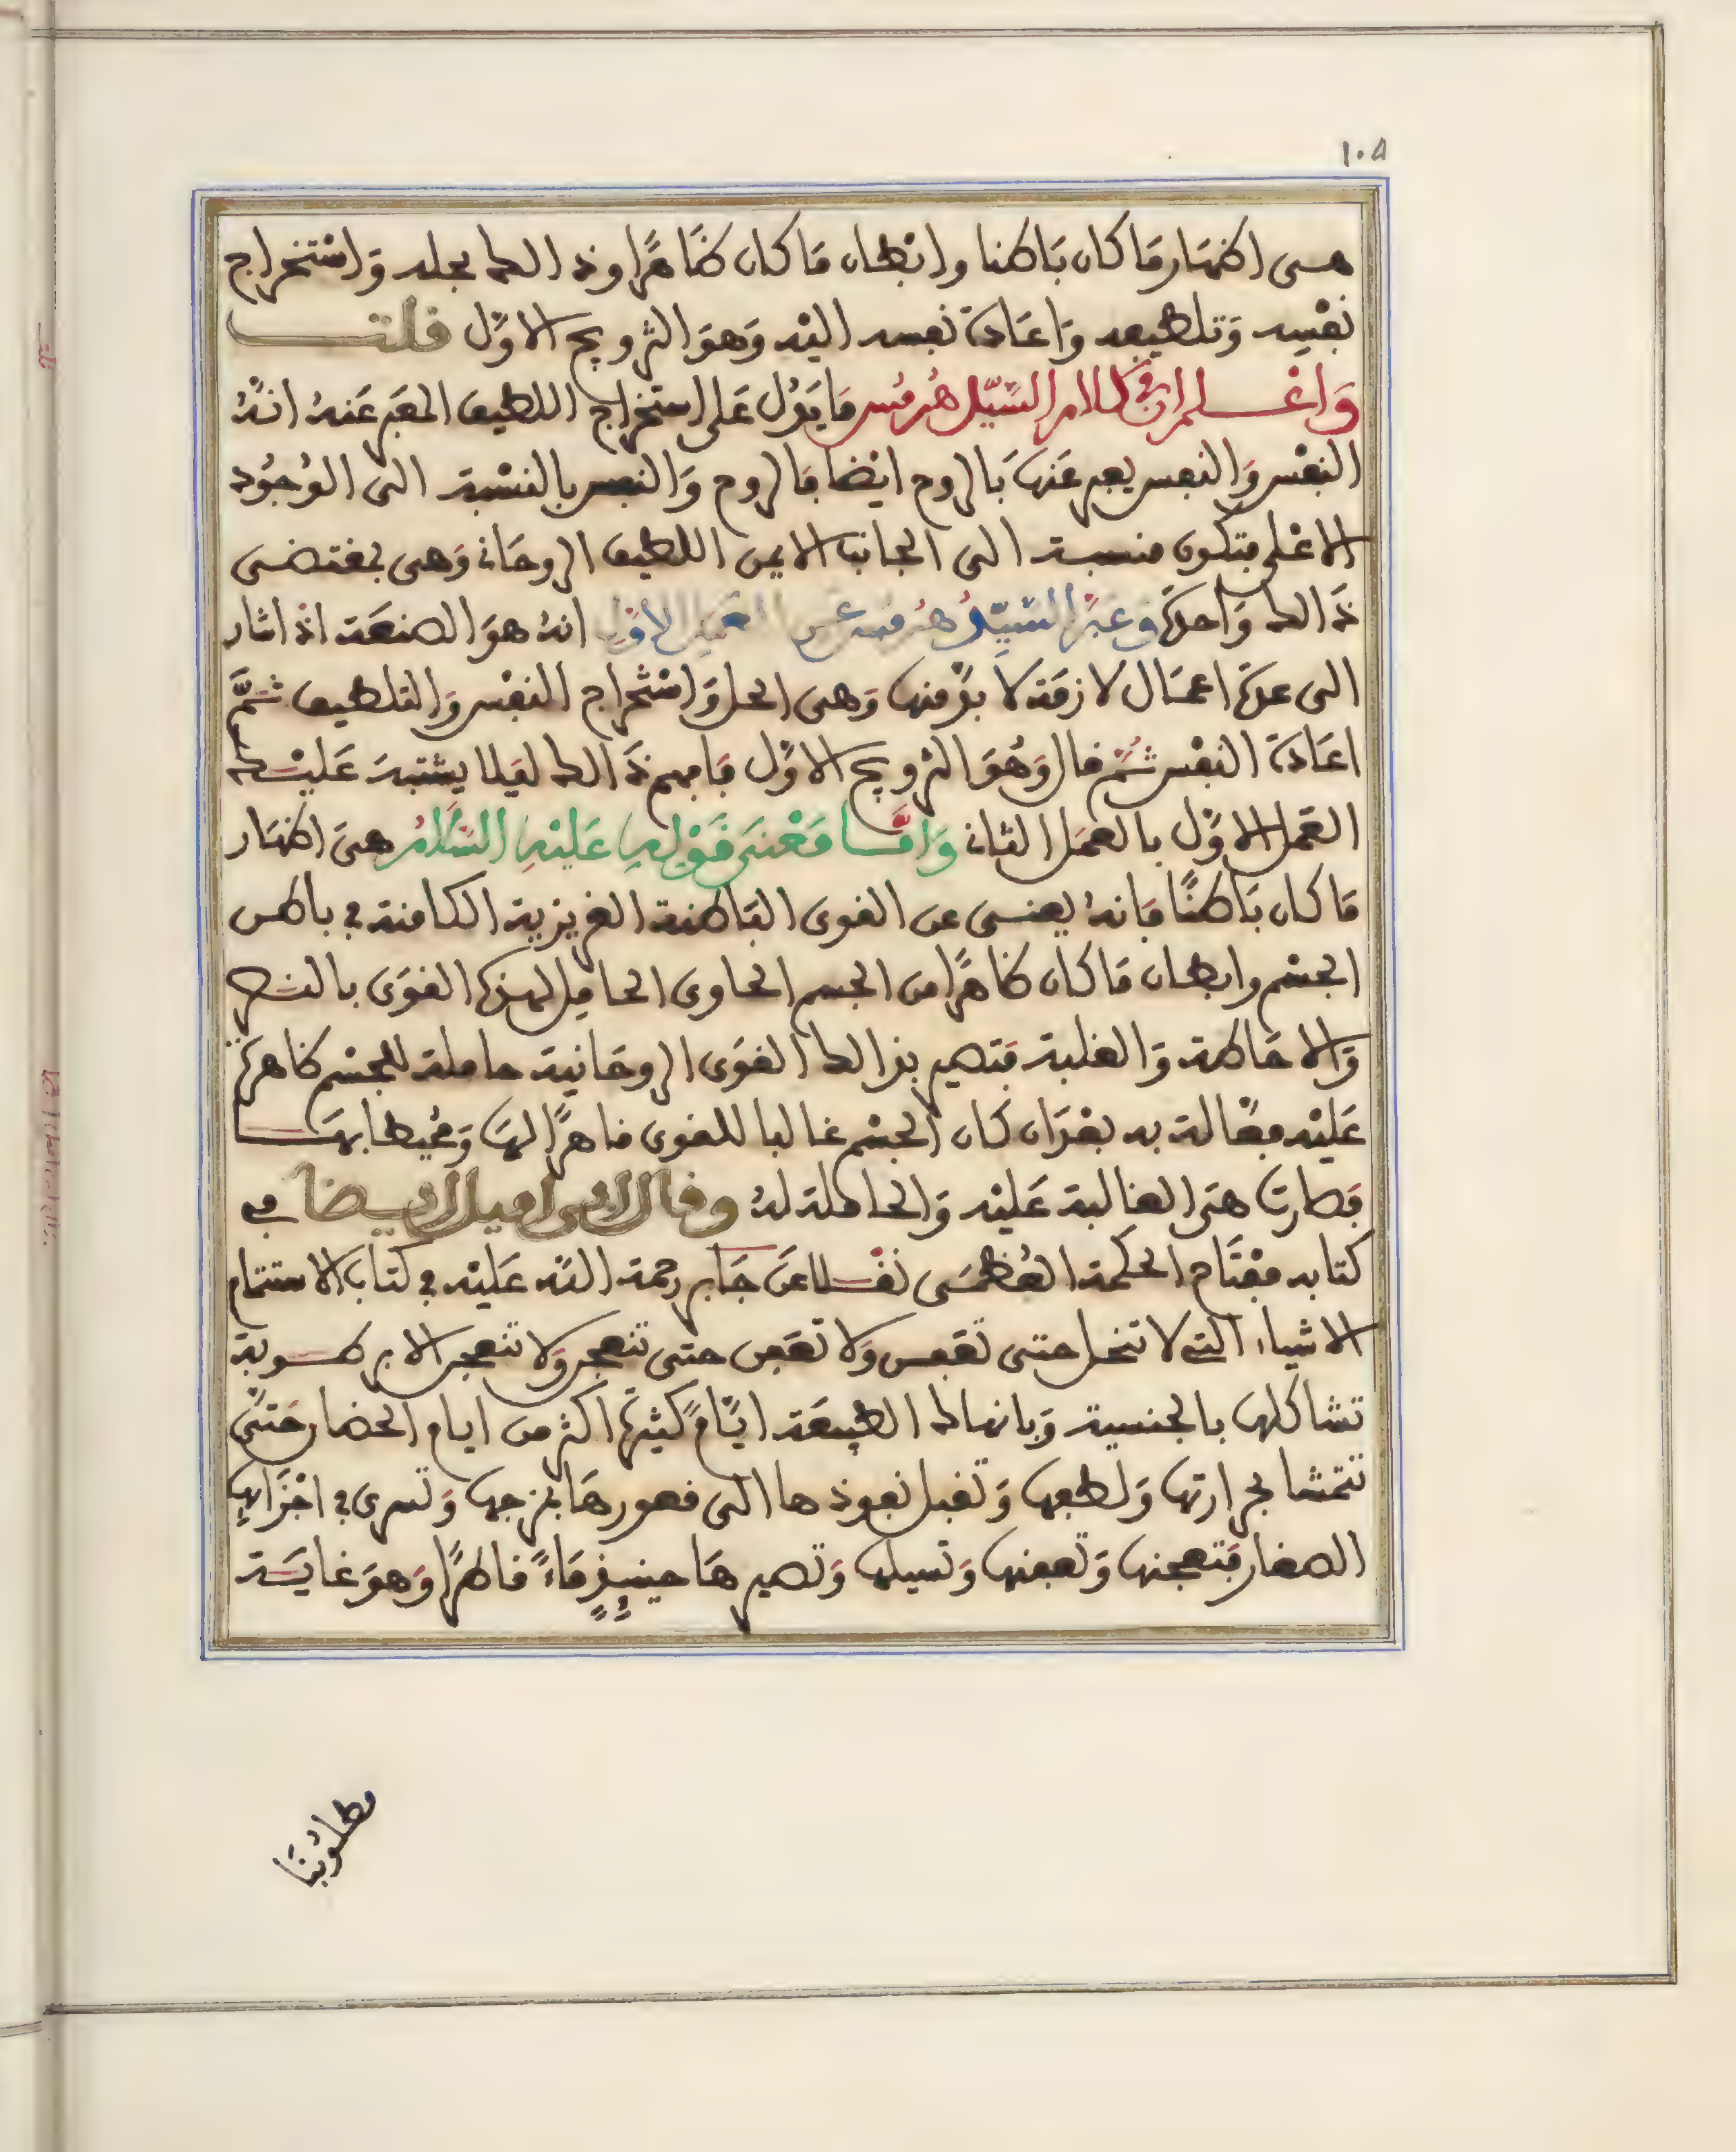 ١٠٥
هـى اظهَار مَا كان بَاطنا وابْطان مَا كان ظَاهرًا وذالك بحله وَاسْتخراج
نفْسِه وَتلطيفه وَاعَادة نفسه اليْه وَهوَ التزويج الاوَّل قلت
وَاعْـلم ان فى كلام السَّيّد هُرمُس مَا يَدُل عَلى استخراج اللطيف المعَبر عَنهُ انهُ
النفْس وَالنفس يعبر عَنهَا بَالروح ايْضا فَالروح وَالنفس بالنسْبة الى الوُجوُد
الاعْلى فتكون منسبة الى الجانب الايمن اللطيف الروحَانى وَهى بمقتضـى
ذَالك وَاحدة وعَبَّر السَّيِّدُ هُرمس عـن العَمَل الاوَّل انهُ هوَ الصنعَة اذْ اشار
الى عدة اعمَال لازمَة لا بدَّ منها وَهى الحل وَاسْتخراج النفْس وَالتلطيف ثـمَّ
اعَادة النفْس ثُمَّ قال وَهُوَ التزويج الاوَّل فَافهم ذَالك ليَلا يشتبهَ عَليْـك
العَمل الاوَّل بالعمَل الثانى وَامَّـا مَعْنـَى قَوْلِهِ عَليْهِ السَّلامُ هىَ اظهَار
مَا كان بَاطنًا فَانهُ يعنـى عن القوى البَاطنة الغريزية الكامنة فى باطن
الجسْم وابطان مَا كان ظاهرًا من الجسم الحاوى الحامِل لهذه القوَى بالقهـر
وَالاحَاطة وَالغلبة فتصير بذالك القوَى الروحَانية حاملة للجسْم ظاهرة
عَليْه فعَّالة به بعْدَ ان كان الجسْم غالبا للقوى قاهرًا لهَا وَمُحيطا بهَـا
فصَارت هىَ الغالبة عَليْه وَالحاملة لهُ وقال فى
كتابه مفْتاح الحكمة العُظمـى نقْـلا عنَ جَابر رحمة اللّه عَليْه فى كتاب الاستتمام
الاشياء التى لا تنحـل حتـى تعَفـن وَلا تعَفن حتى تنعجن وَلا تنعجن الا برطـوبة
تشاكلها بالجنسية وَبانهاك الطبيعَة ايَّامً كثيرة اكثر من ايام الحضار حَتىَّ
تتمشا بحرارتها وَلطفها وَتقبل نفوذها الى قعورهَا بمزجها وَتسرى فى اجْزَايهَا
الصغار فتعجنها وَتعفنها وَتسيلها وَتصيرهَا حينيِذٍ مَاءً قاطرًا وَهوَ غايـَة
مطلوُبنَا